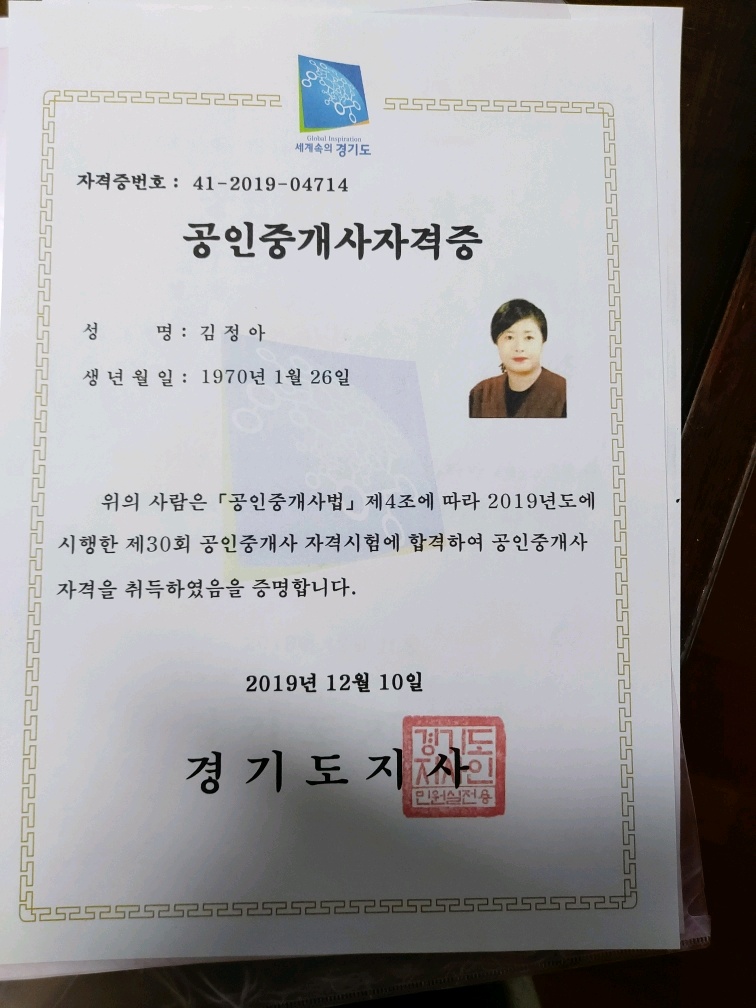 Global Inspiration
세계속의 경기도
자격증번호 : 41-2019-04714
공인중개사자격증
성 명 : 김정아
생년월일 : 1970년 1월 26일
위의 사람은 「공인중개사법」 제4조에 따라 2019년도에
시행한 제30회 공인중개사 자격시험에 합격하여 공인중개사
자격을 취득하였음을 증명합니다.
2019년 12월 10일
경기도지사
경기도
지사인
민원실전용